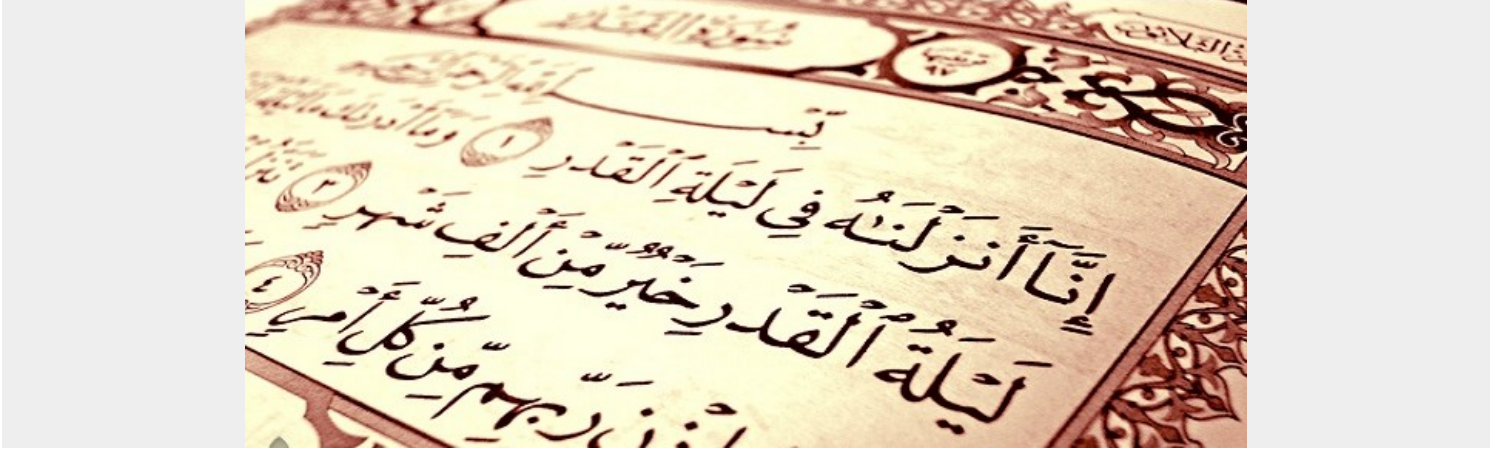 سُورَةُ القَدْرِ
ترتيبها ٩٧
بِسْمِ ٱللَّهِ ٱلرَّحْمَٰنِ ٱلرَّحِيمِ
إِنَّآ أَنزَلْنَٰهُ فِي لَيْلَةِ ٱلْقَدْرِ ١ وَمَآ أَدْرَىٰكَ مَا لَيْلَةُ
لَيْلَةُ ٱلْقَدْرِ خَيْرٌ مِّنْ أَلْفِ شَهْرٍ ٣
رَبِّهِم مِّن كُلِّ أَمْرٍ ٤